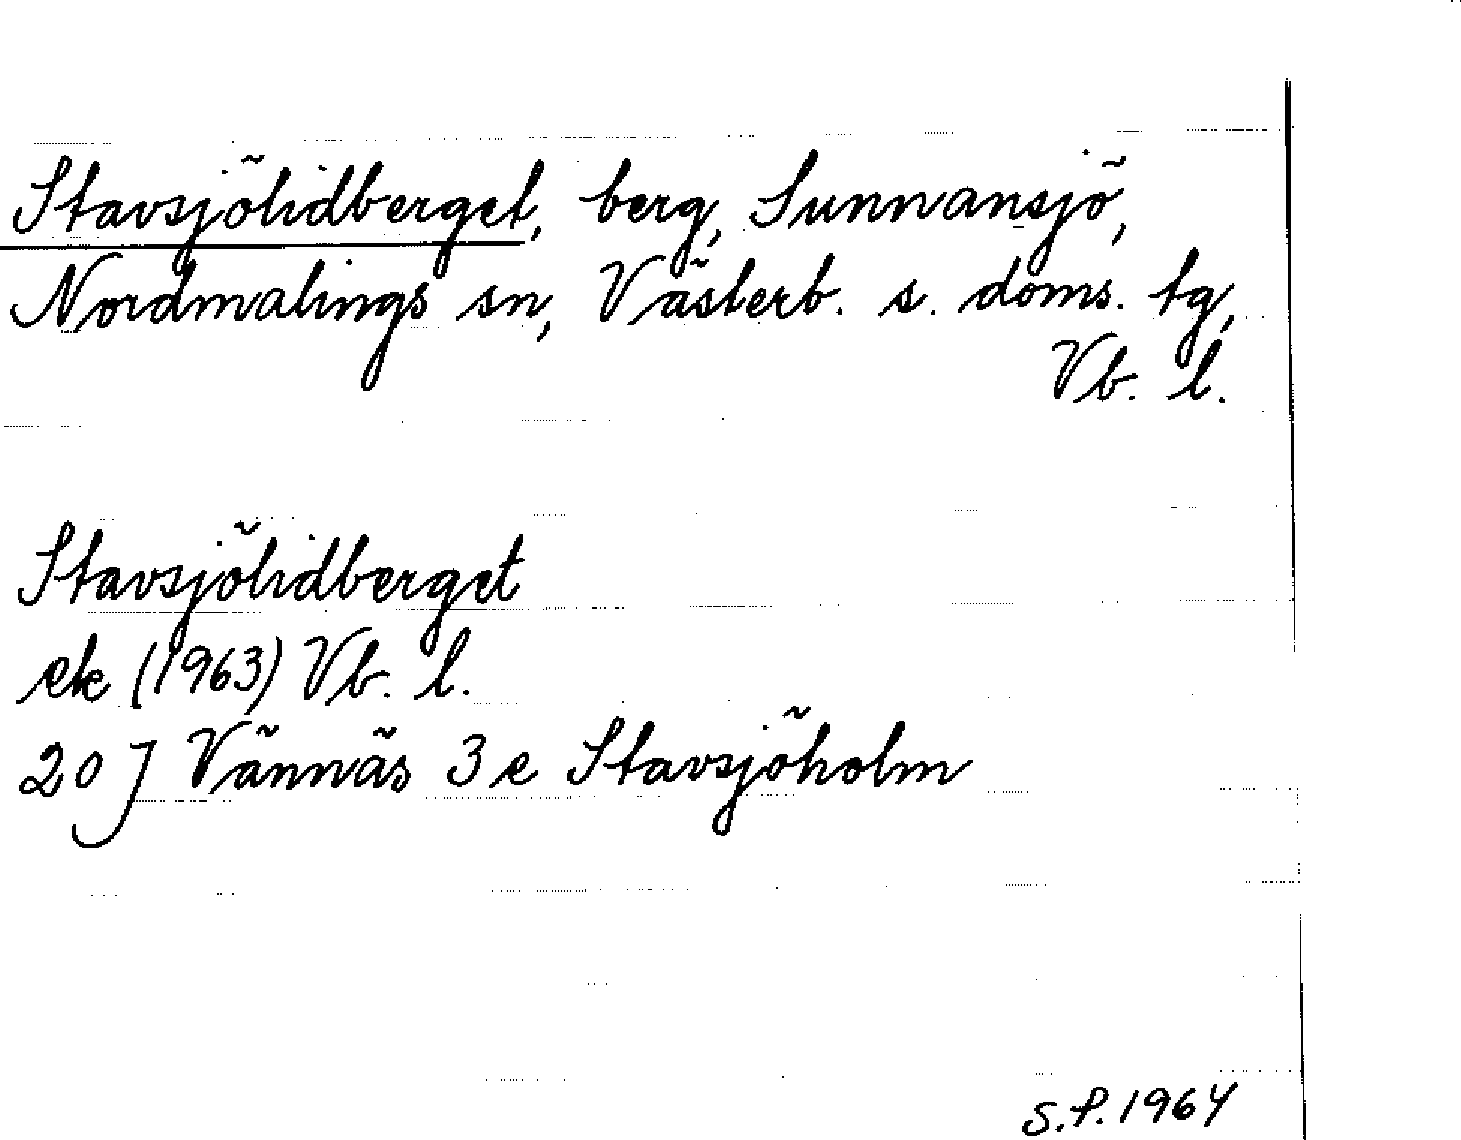 Stavsjölidberget, berg, Sunnansjö,
Nordmalings sn, Västerb. s. doms. tg,
Vb. l.
Stavsjölidberget
ek (1963) Vb. l.
20 J Vännäs 3 e Stavsjöholm
S.P. 1964